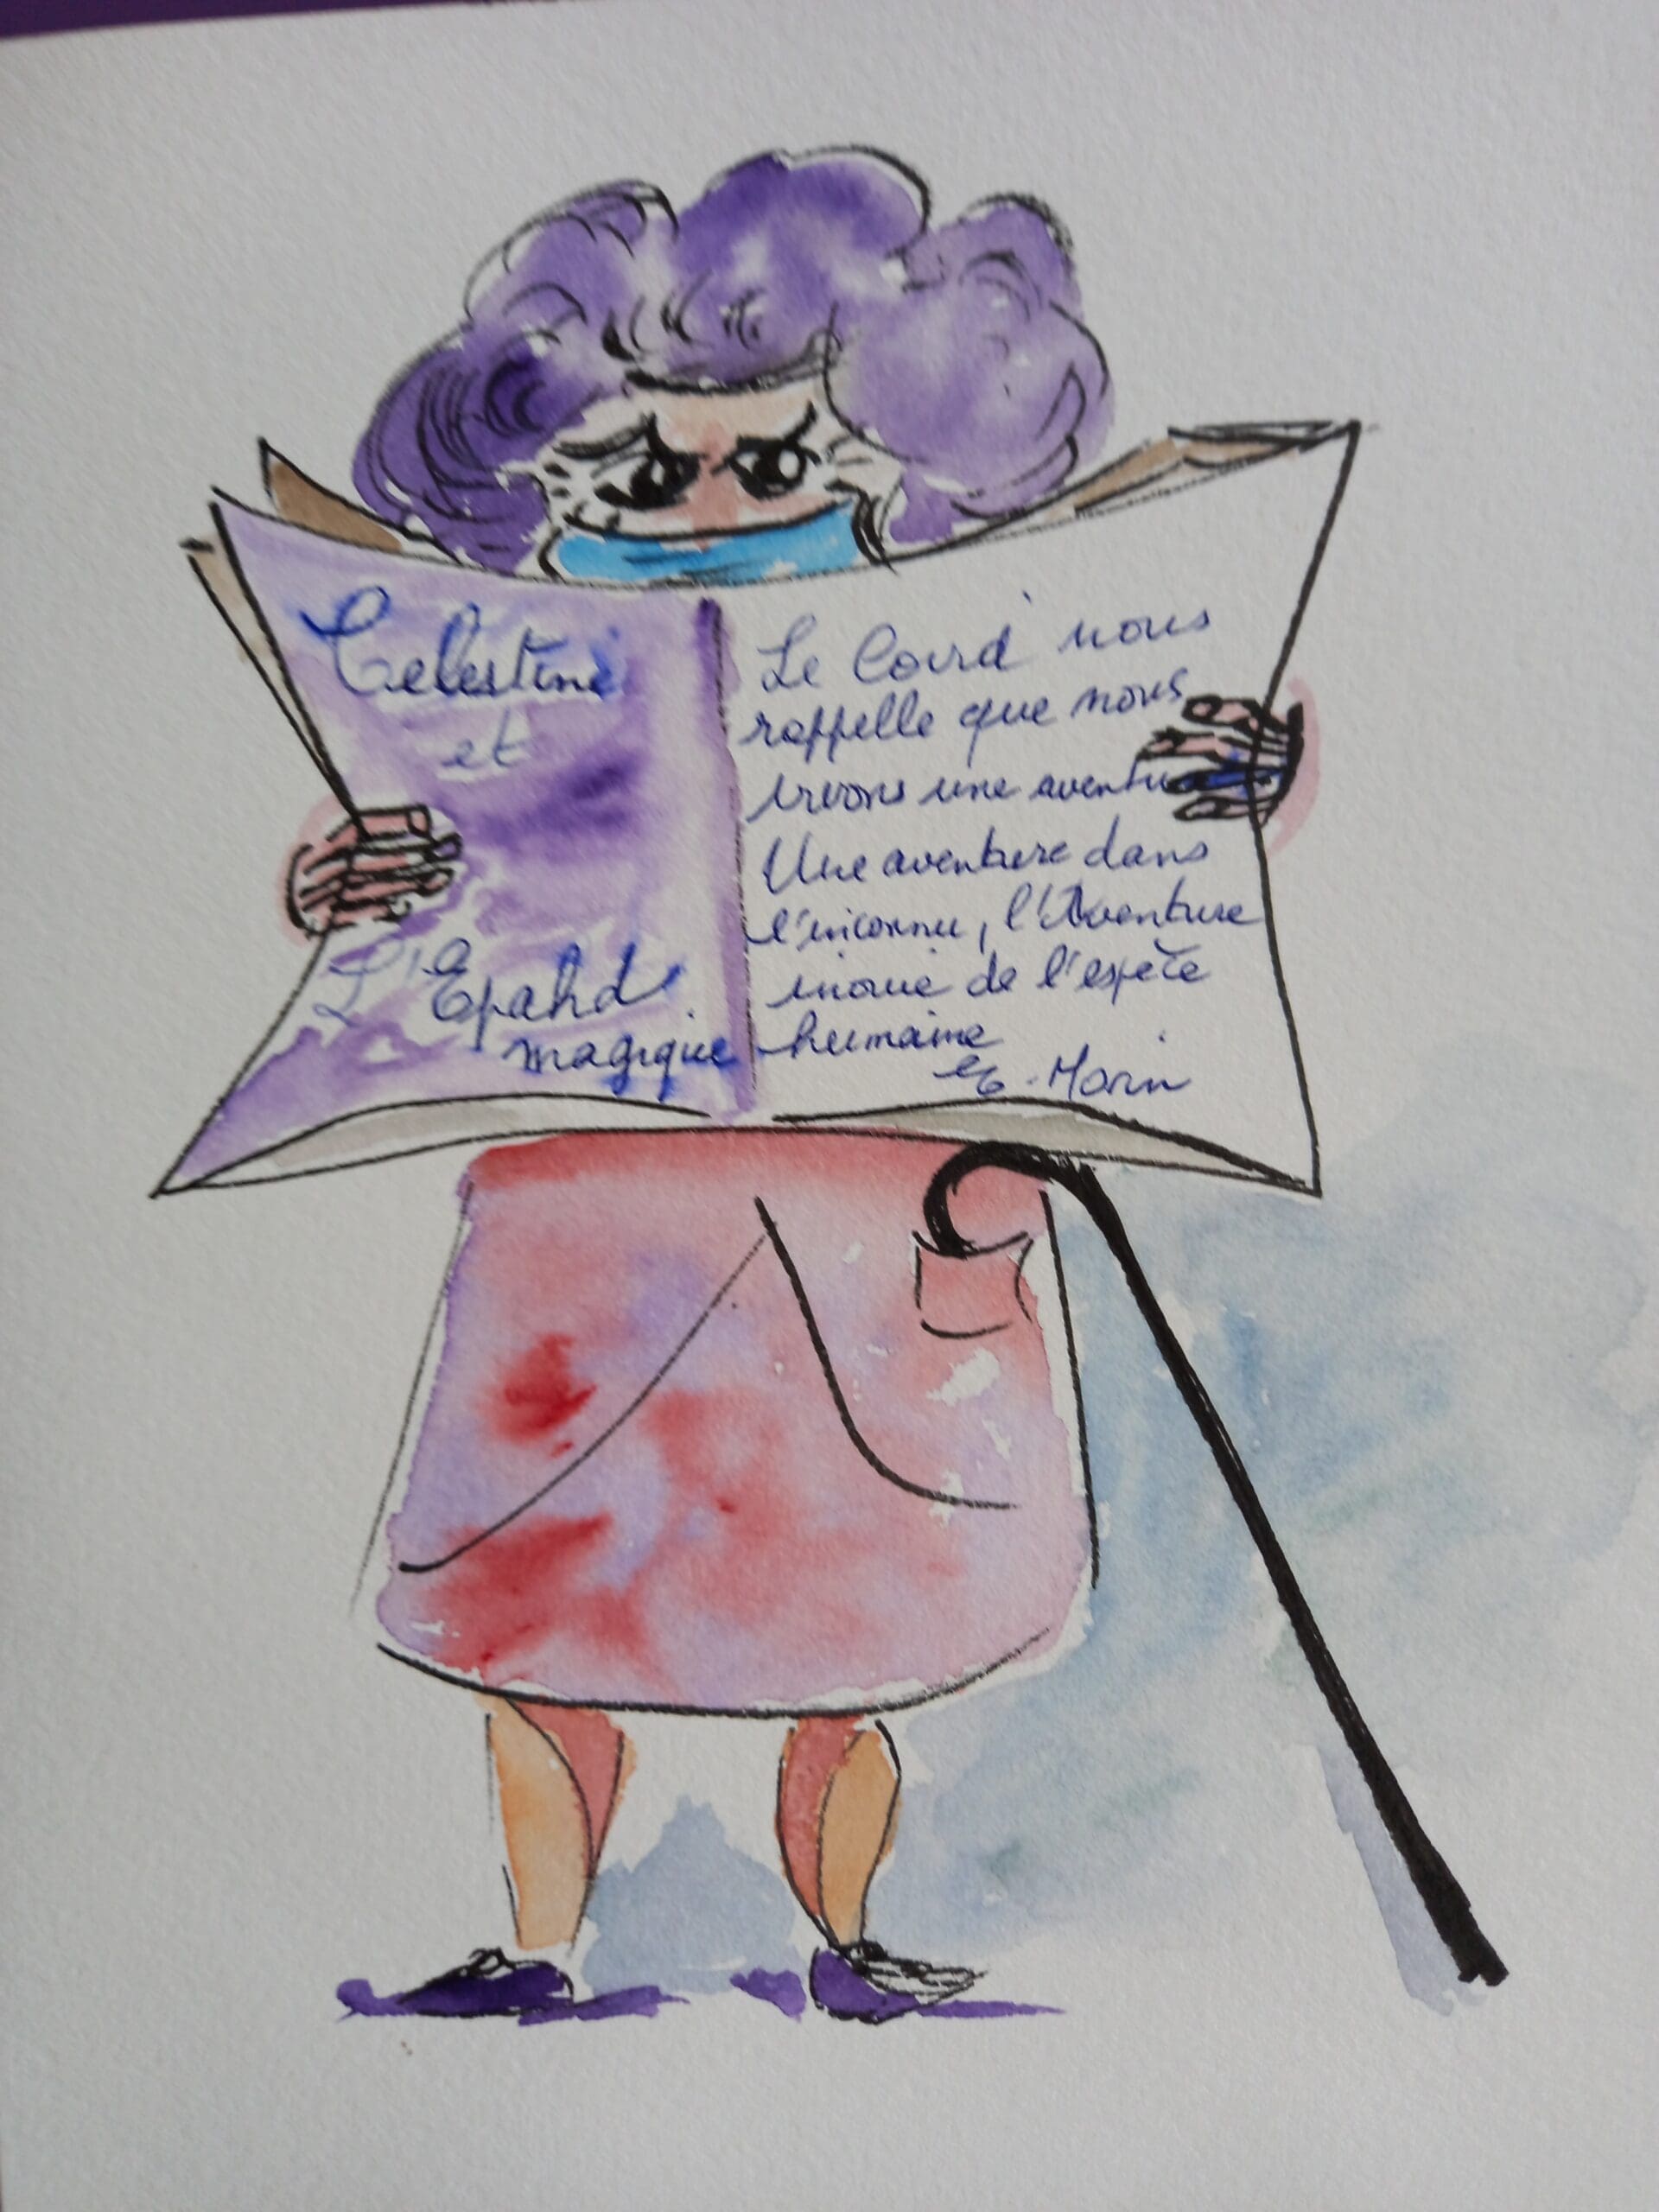 Celestine
et
L'Epahd
magique
Le Covid nous
rappelle que nous
vivons une aventu
Une aventure dans
l'inconnu, l'Aventure
inouie de l'espèce
humaine
E. Morin